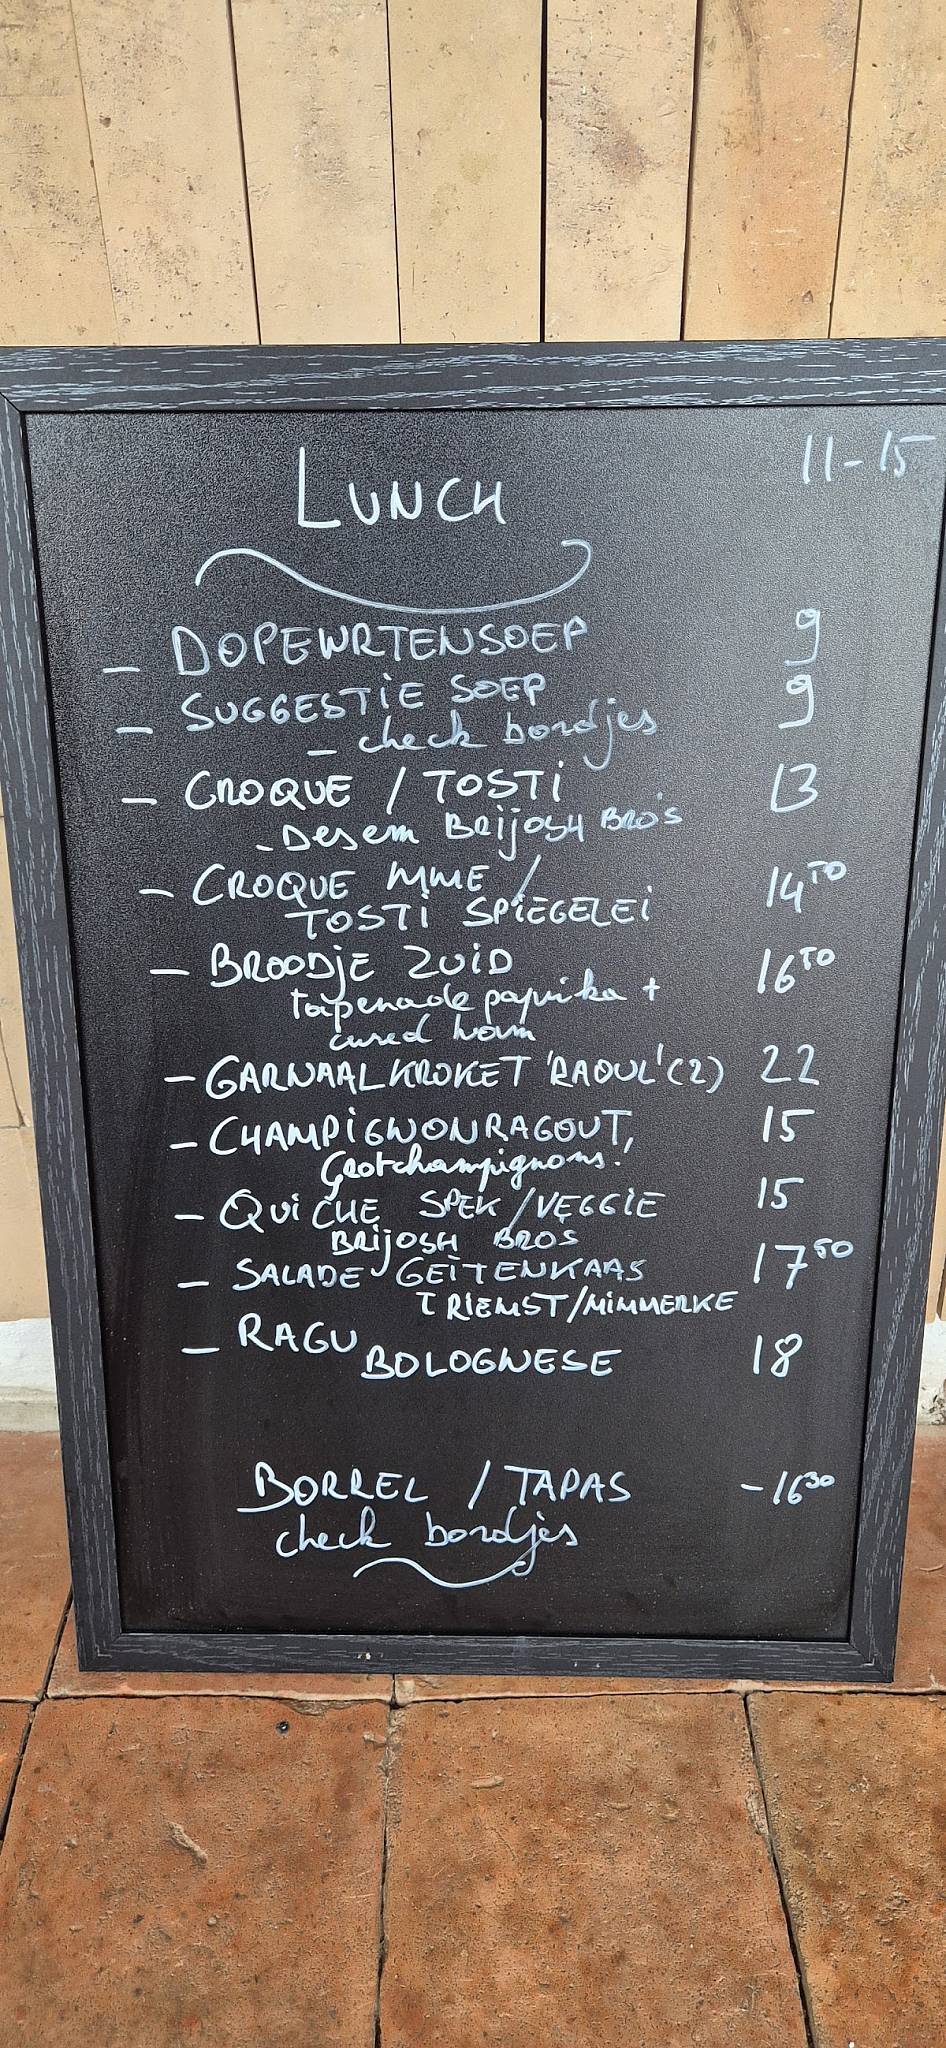 LUNCH 11-15
- DOPEWRTENSOEP 9
- SUGGESTIE SOEP 9
- check bordjes
- CROQUE / TOSTI 13
- Desem BRIJOSH BRO'S
- CROQUE MME / 14⁵⁰
TOSTI SPIEGELEI
- BROODJE ZUID 16⁵⁰
tapenade paprika +
cured ham
- GARNAALKROKET 'RAOUL' (2) 22
- CHAMPIGNONRAGOUT, 15
Grotchampignons!
- QUICHE SPEK / VEGGIE 15
BRIJOSH BROS
- SALADE GEITENKAAS 17⁵⁰
TRIEMST/MIMMERKE
- RAGU 18
BOLOGNESE
BORREL / TAPAS -16³⁰
check bordjes